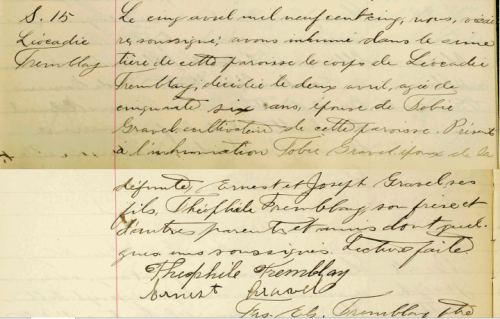 S. 15
Léocadie
Tremblay
Le cinq avril mil neuf cent cinq, nous, vicai
re, soussigné, avons inhumé dans le cime
tière de cette paroisse le corps de Léocadie
Tremblay, décédée le deux avril, agée de
cinquante six ans, épouse de Tobie
Gravel, cultivateur de cette paroisse. Présents
à l'inhumation Tobie Gravel, époux de la
défunte, Ernest et Joseph Gravel, ses
fils, Théophile Tremblay son frère et
d'autres parents et amis dont quel-
ques uns soussignés. Lecture faite
Théophile Tremblay
Ernest Gravel
Frs. El. Tremblay Ptre